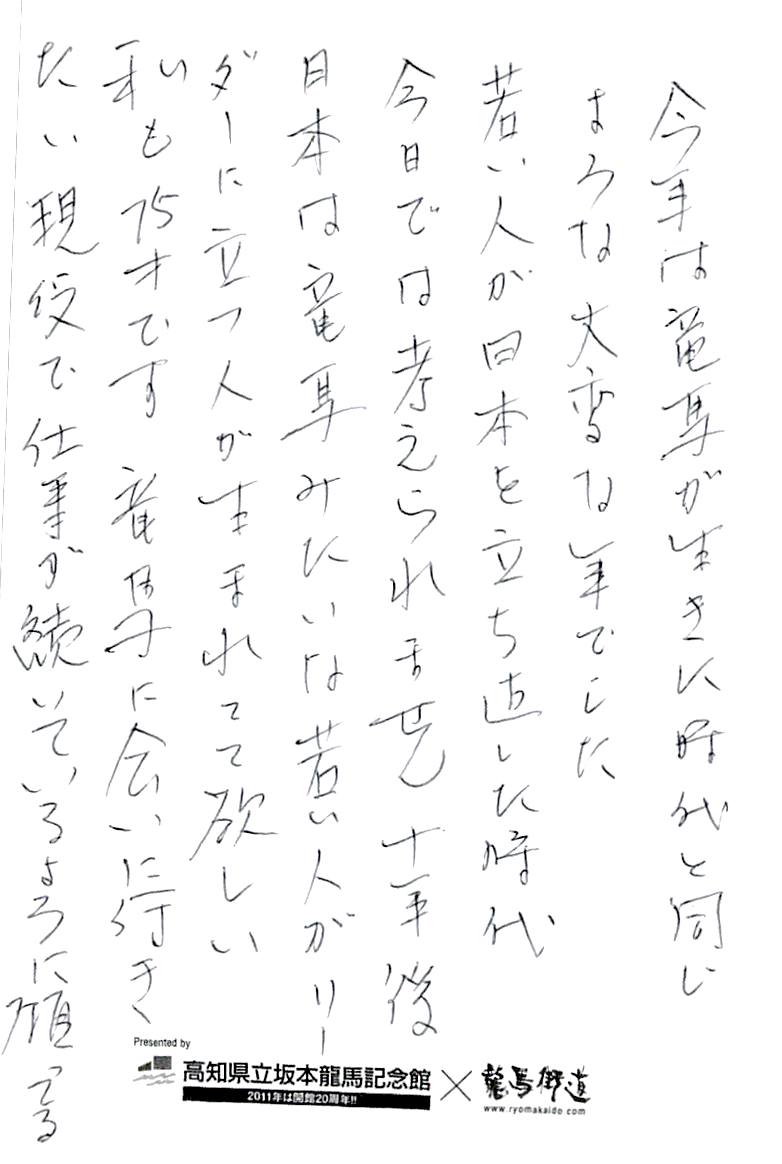 今年は竜馬が生きた時代と同じ
ような大変な年でした
若い人が日本を立ち直した時代
今日では考えられません 十年後
日本は竜馬みたいな若い人がリー
ダーに立つ人が生まれてて欲しい
私も75才です 竜馬に会いに行き
たい現役で仕事が続いているように願ってる
Presented by
高知県立坂本龍馬記念館×龍馬街道
2011年は開館20周年!!
www.ryomakaido.com